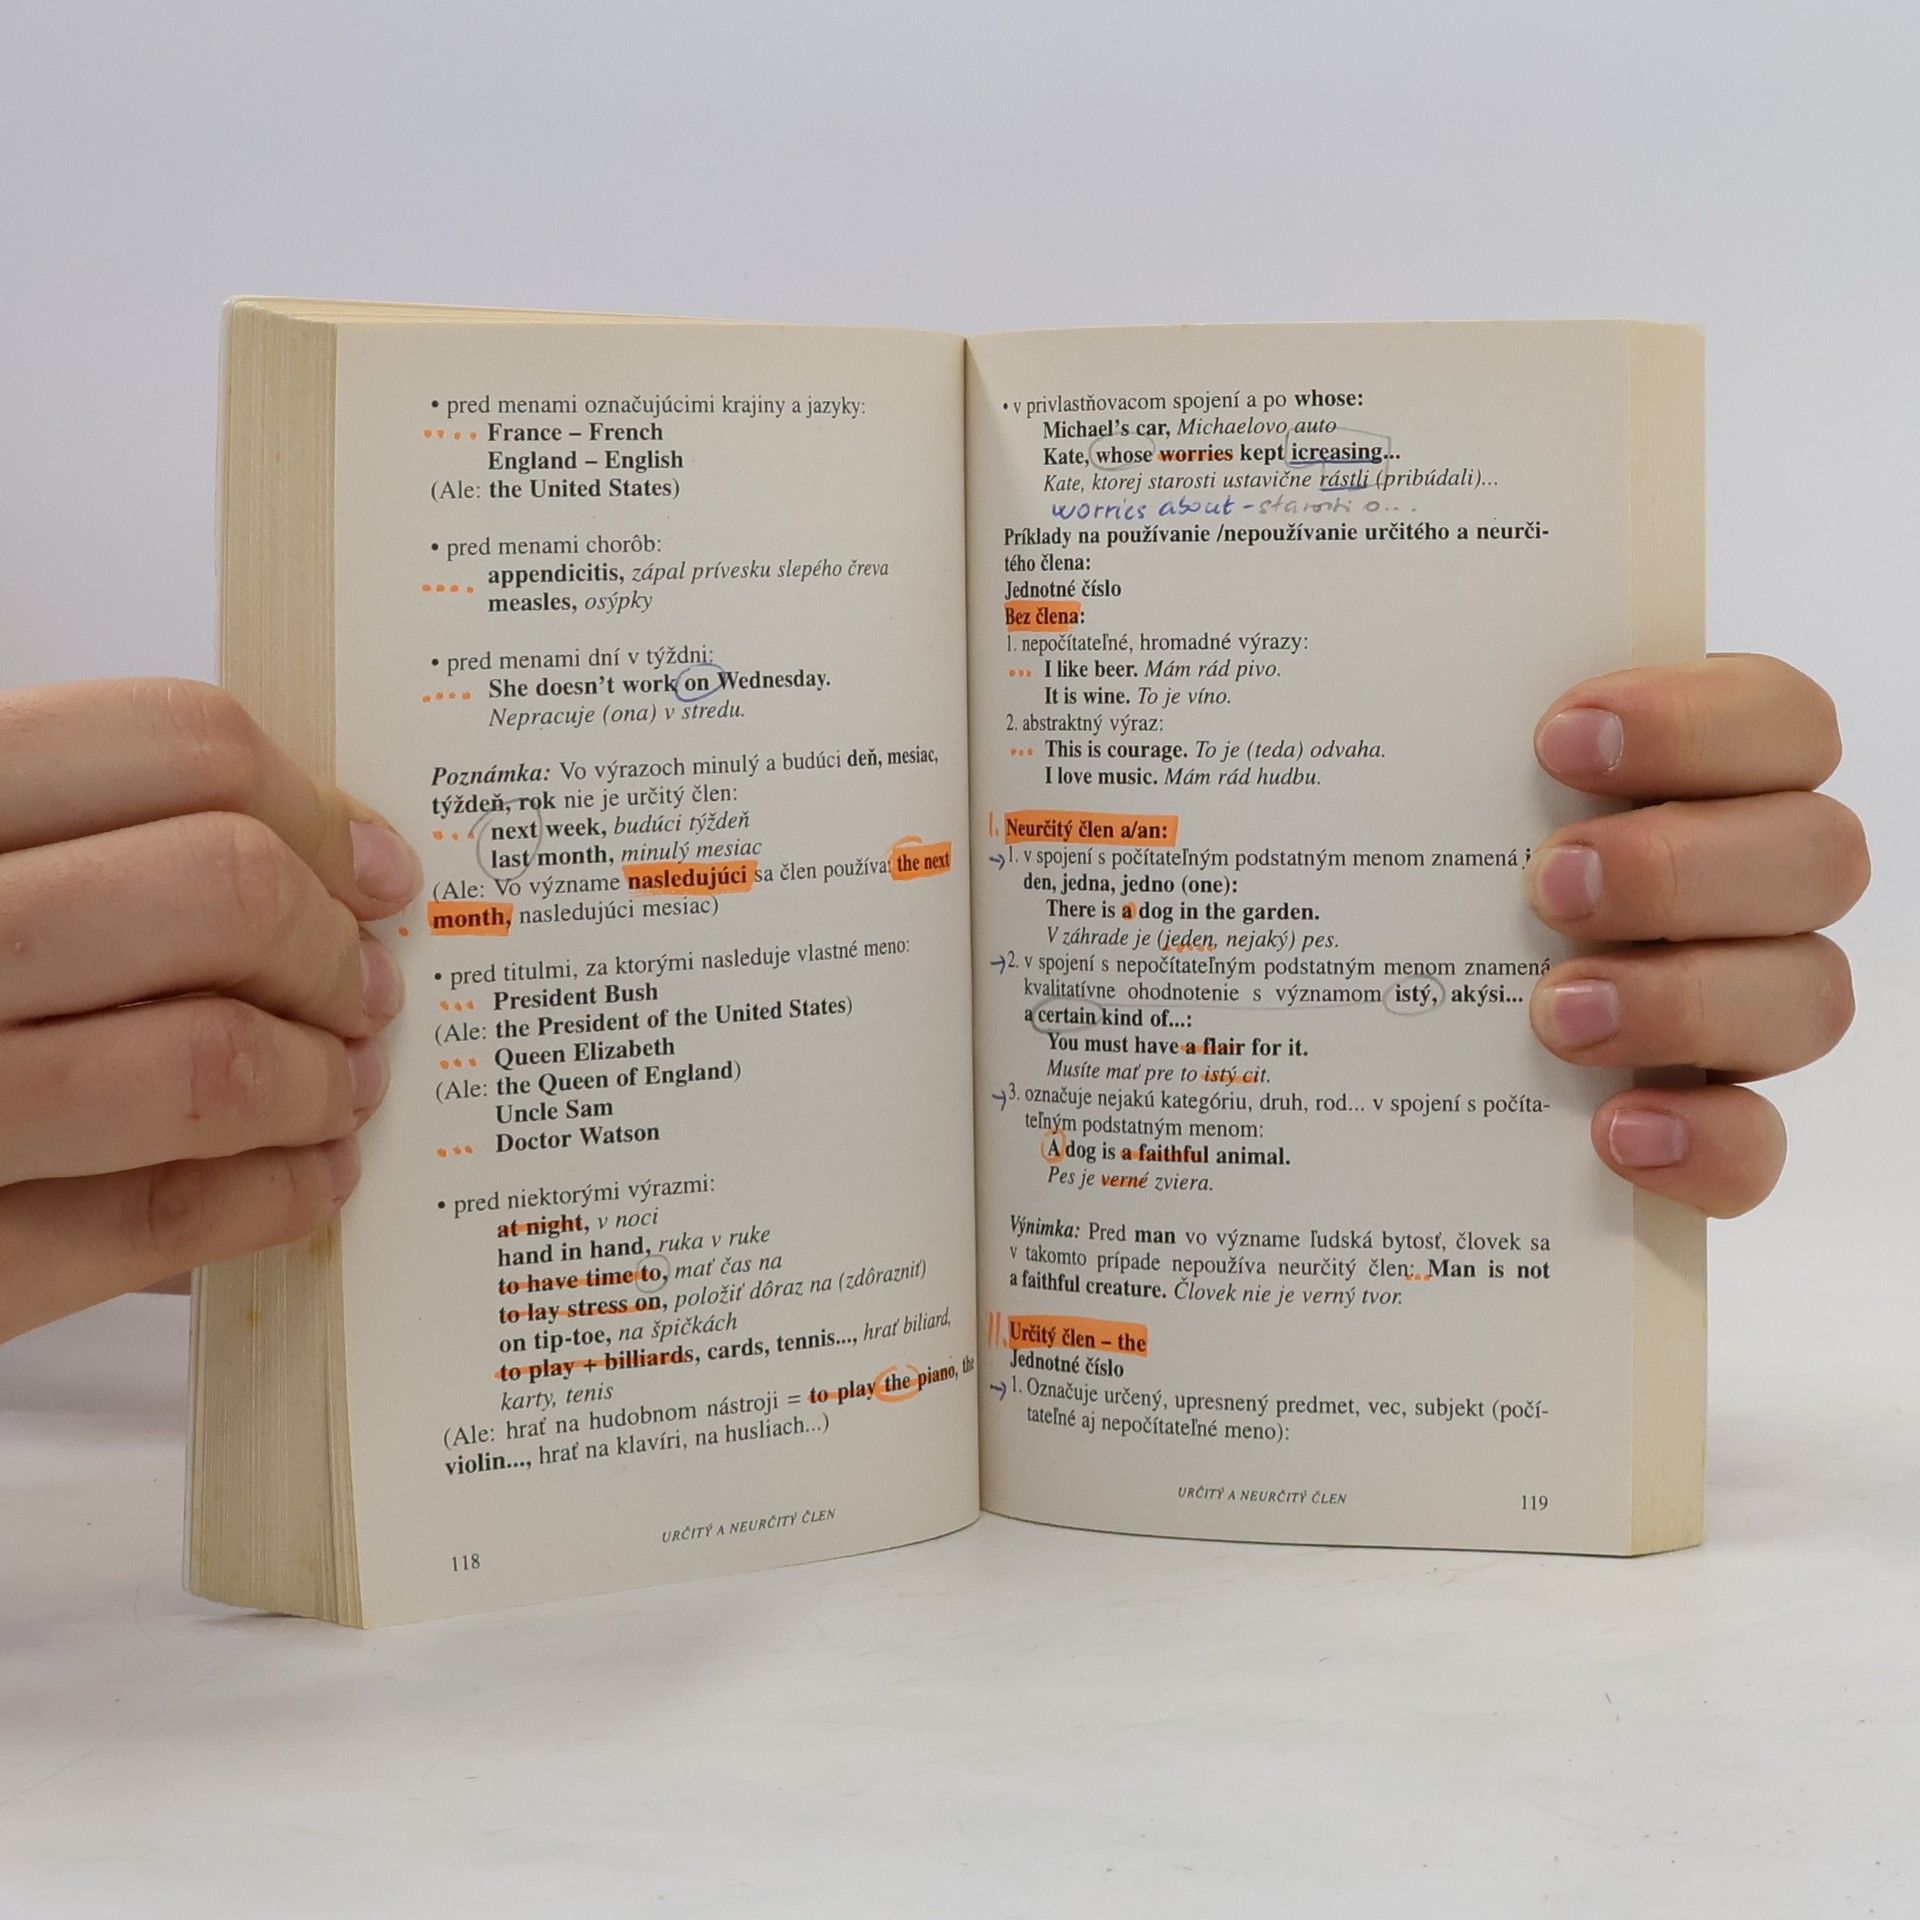 • pred menami označujúcimi krajiny a jazyky:
France – French
England – English
(Ale: the United States)
• pred menami chorôb:
appendicitis, zápal prívesku slepého čreva
measles, osýpky
• pred menami dní v týždni:
She doesn't work on Wednesday.
Nepracuje (ona) v stredu.
Poznámka: Vo výrazoch minulý a budúci deň, mesiac,
týždeň, rok nie je určitý člen:
next week, budúci týždeň
last month, minulý mesiac
(Ale: Vo význame nasledujúci sa člen používa: the next
month, nasledujúci mesiac)
• pred titulmi, za ktorými nasleduje vlastné meno:
President Bush
(Ale: the President of the United States)
Queen Elizabeth
(Ale: the Queen of England)
Uncle Sam
Doctor Watson
• pred niektorými výrazmi:
at night, v noci
hand in hand, ruka v ruke
to have time to, mať čas na
to lay stress on, položiť dôraz na (zdôrazniť)
on tip-toe, na špičkách
to play + billiards, cards, tennis..., hrať biliard,
karty, tenis
(Ale: hrať na hudobnom nástroji = to play the piano, the
violin..., hrať na klavíri, na husliach...)
URČITÝ A NEURČITÝ ČLEN
118
• v privlastňovacom spojení a po whose:
Michael's car, Michaelovo auto
Kate, whose worries kept icreasing...
Kate, ktorej starosti ustavične rástli (pribúdali)...
worries about - starosti o...
Príklady na používanie /nepoužívanie určitého a neurči-
tého člena:
Jednotné číslo
Bez člena:
1. nepočítateľné, hromadné výrazy:
I like beer. Mám rád pivo.
It is wine. To je víno.
2. abstraktný výraz:
This is courage. To je (teda) odvaha.
I love music. Mám rád hudbu.
I. Neurčitý člen a/an:
→ 1. v spojení s počítateľným podstatným menom znamená
den, jedna, jedno (one):
There is a dog in the garden.
V záhrade je (jeden, nejaký) pes.
→ 2. v spojení s nepočítateľným podstatným menom znamená
kvalitatívne ohodnotenie s významom istý, akýsi...
a certain kind of...:
You must have a flair for it.
Musíte mať pre to istý cit.
→ 3. označuje nejakú kategóriu, druh, rod... v spojení s počíta-
teľným podstatným menom:
A dog is a faithful animal.
Pes je verné zviera.
Výnimka: Pred man vo význame ľudská bytosť, človek sa
v takomto prípade nepoužíva neurčitý člen: Man is not
a faithful creature. Človek nie je verný tvor.
II. Určitý člen – the
Jednotné číslo
→ 1. Označuje určený, upresnený predmet, vec, subjekt (počí-
tateľné aj nepočítateľné meno):
URČITÝ A NEURČITÝ ČLEN
119